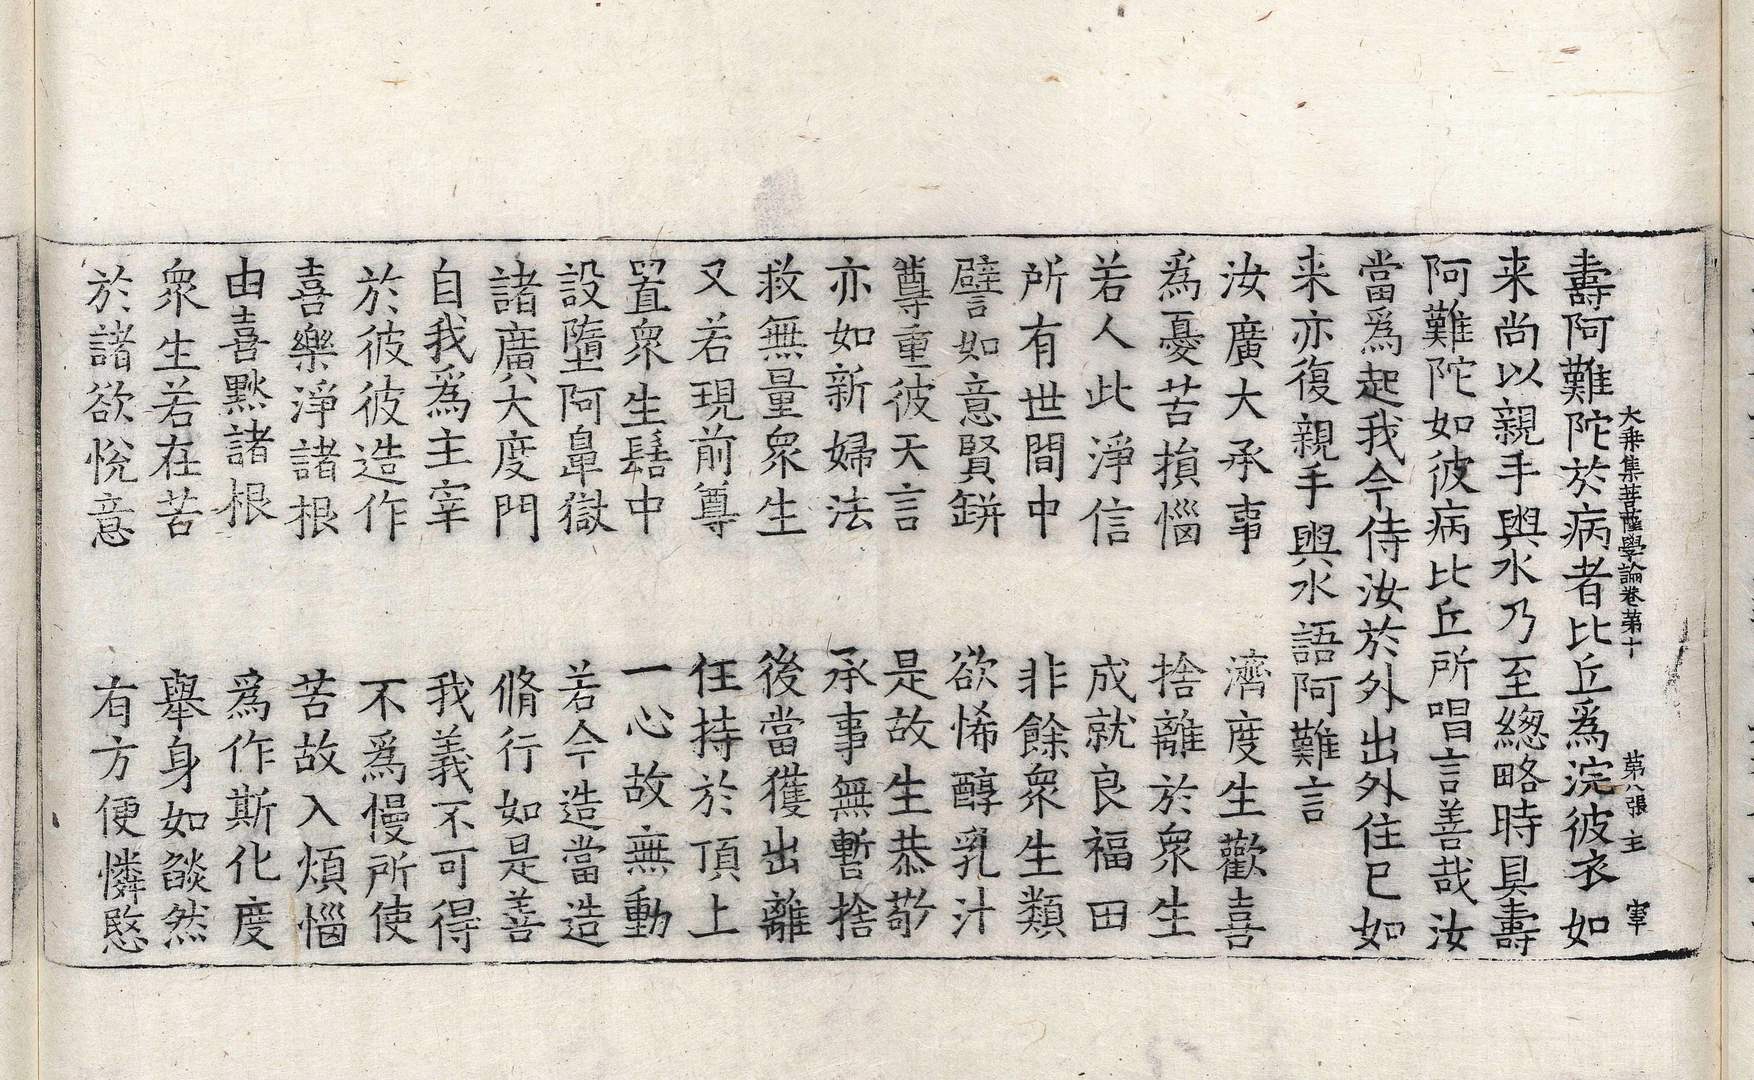 大乗集菩薩學論卷第十 第八張 主 宰
壽阿難陀於病者比丘爲浣彼衣如
来尚以親手與水乃至緫略時具壽
阿難陀如彼病比丘所唱言善哉汝
當爲起我今侍汝於外出外住已如
来亦復親手與水語阿難言
汝廣大承事 濟度生歡喜
爲憂苦損惱 捨離於衆生
若人此淨信 成就良福田
所有世間中 非餘衆生類
譬如意賢缾 欲悕醇乳汁
尊重彼天言 是故生恭敬
亦如新婦法 承事無暫捨
救無量衆生 後當獲出離
又若現前尊 任持於頂上
置衆生髻中 一心故無動
設墮阿鼻獄 若今造當造
諸廣大度門 脩行如是善
自我爲主宰 我義不可得
於彼彼造作 不爲慢所使
喜樂淨諸根 苦故入煩惱
由喜黙諸根 爲作斯化度
衆生若在苦 舉身如燄然
於諸欲悅意 有方便憐愍